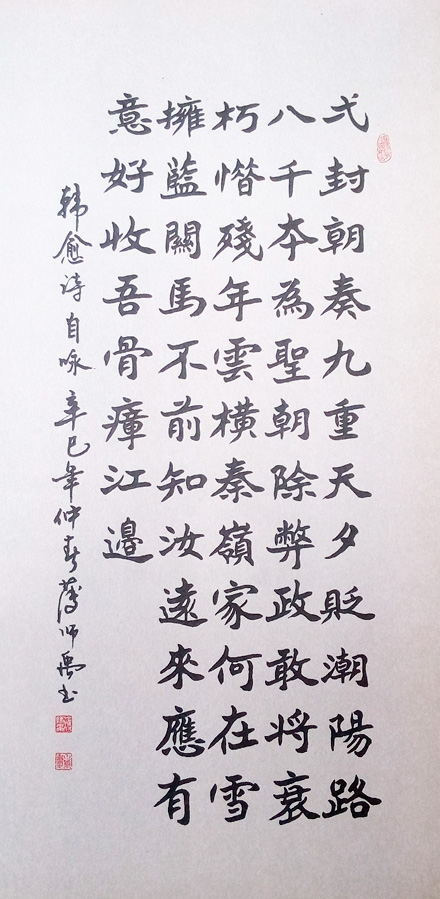 弌封朝奏九重天夕貶潮陽路
八千夲為聖朝除弊政敢将衰
朽惜殘年雲横秦嶺家何在雪
擁藍關馬不前知汝遠來應有
意好收吾骨瘴江邊
韩愈诗自咏辛巳年仲春薄师禹书